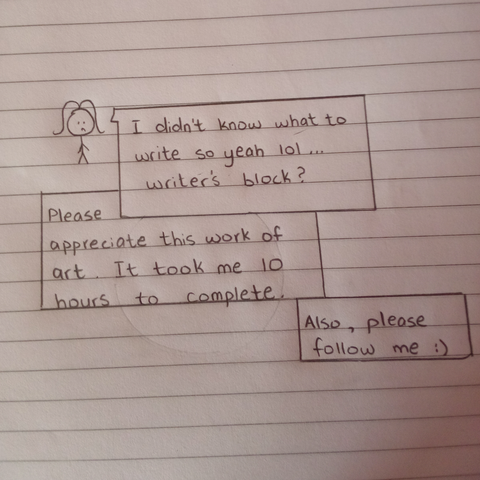 I didn't know what to
write so yeah lol...
writer's block?
Please
appreciate this work of
art. It took me 10
hours to complete.
Also, please
follow me :)